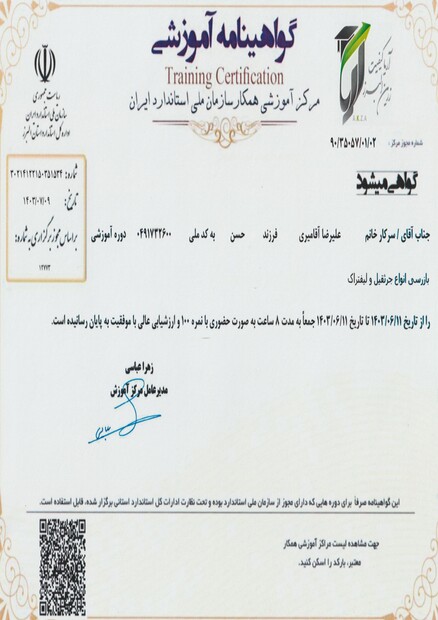 گواهینامه آموزشی
Training Certification
مرکز آموزشی همکار سازمان ملی استاندارد ایران
ریاست جمهوری
سازمان ملی استاندارد ایران
اداره کل استاندارد استان البرز
شماره مجوز مرکز: ۹۰/۳۵۰۵۷/۰۱/۰۲
شماره: ۳۰۲۱۴۱۲۲۱۵۰۳۵۱۵۳۴
تاریخ: ۱۴۰۳/۰۷/۰۹
براساس مجوز برگزاری به شماره:
۱۲۷۷۳
گواهی میشود
جناب آقای / سرکار خانم علیرضا آقامیری فرزند حسن به کد ملی ۰۴۹۱۷۳۲۶۰۰ دوره آموزشی
بازرسی انواع جرثقیل و لیفتراک
را از تاریخ ۱۴۰۳/۰۶/۱۱ تا تاریخ ۱۴۰۳/۰۶/۱۱ جمعاً به مدت ۸ ساعت به صورت حضوری با نمره ۱۰۰ و ارزشیابی عالی با موفقیت به پایان رسانیده است.
زهرا عباسی
مدیرعامل مرکز آموزش
این گواهینامه صرفاً برای دوره هایی که دارای مجوز از سازمان ملی استاندارد بوده و تحت نظارت ادارات کل استاندارد استانی برگزار شده، قابل استفاده است.
جهت مشاهده لیست مراکز آموزشی همکار
معتبر، بارکد را اسکن کنید.